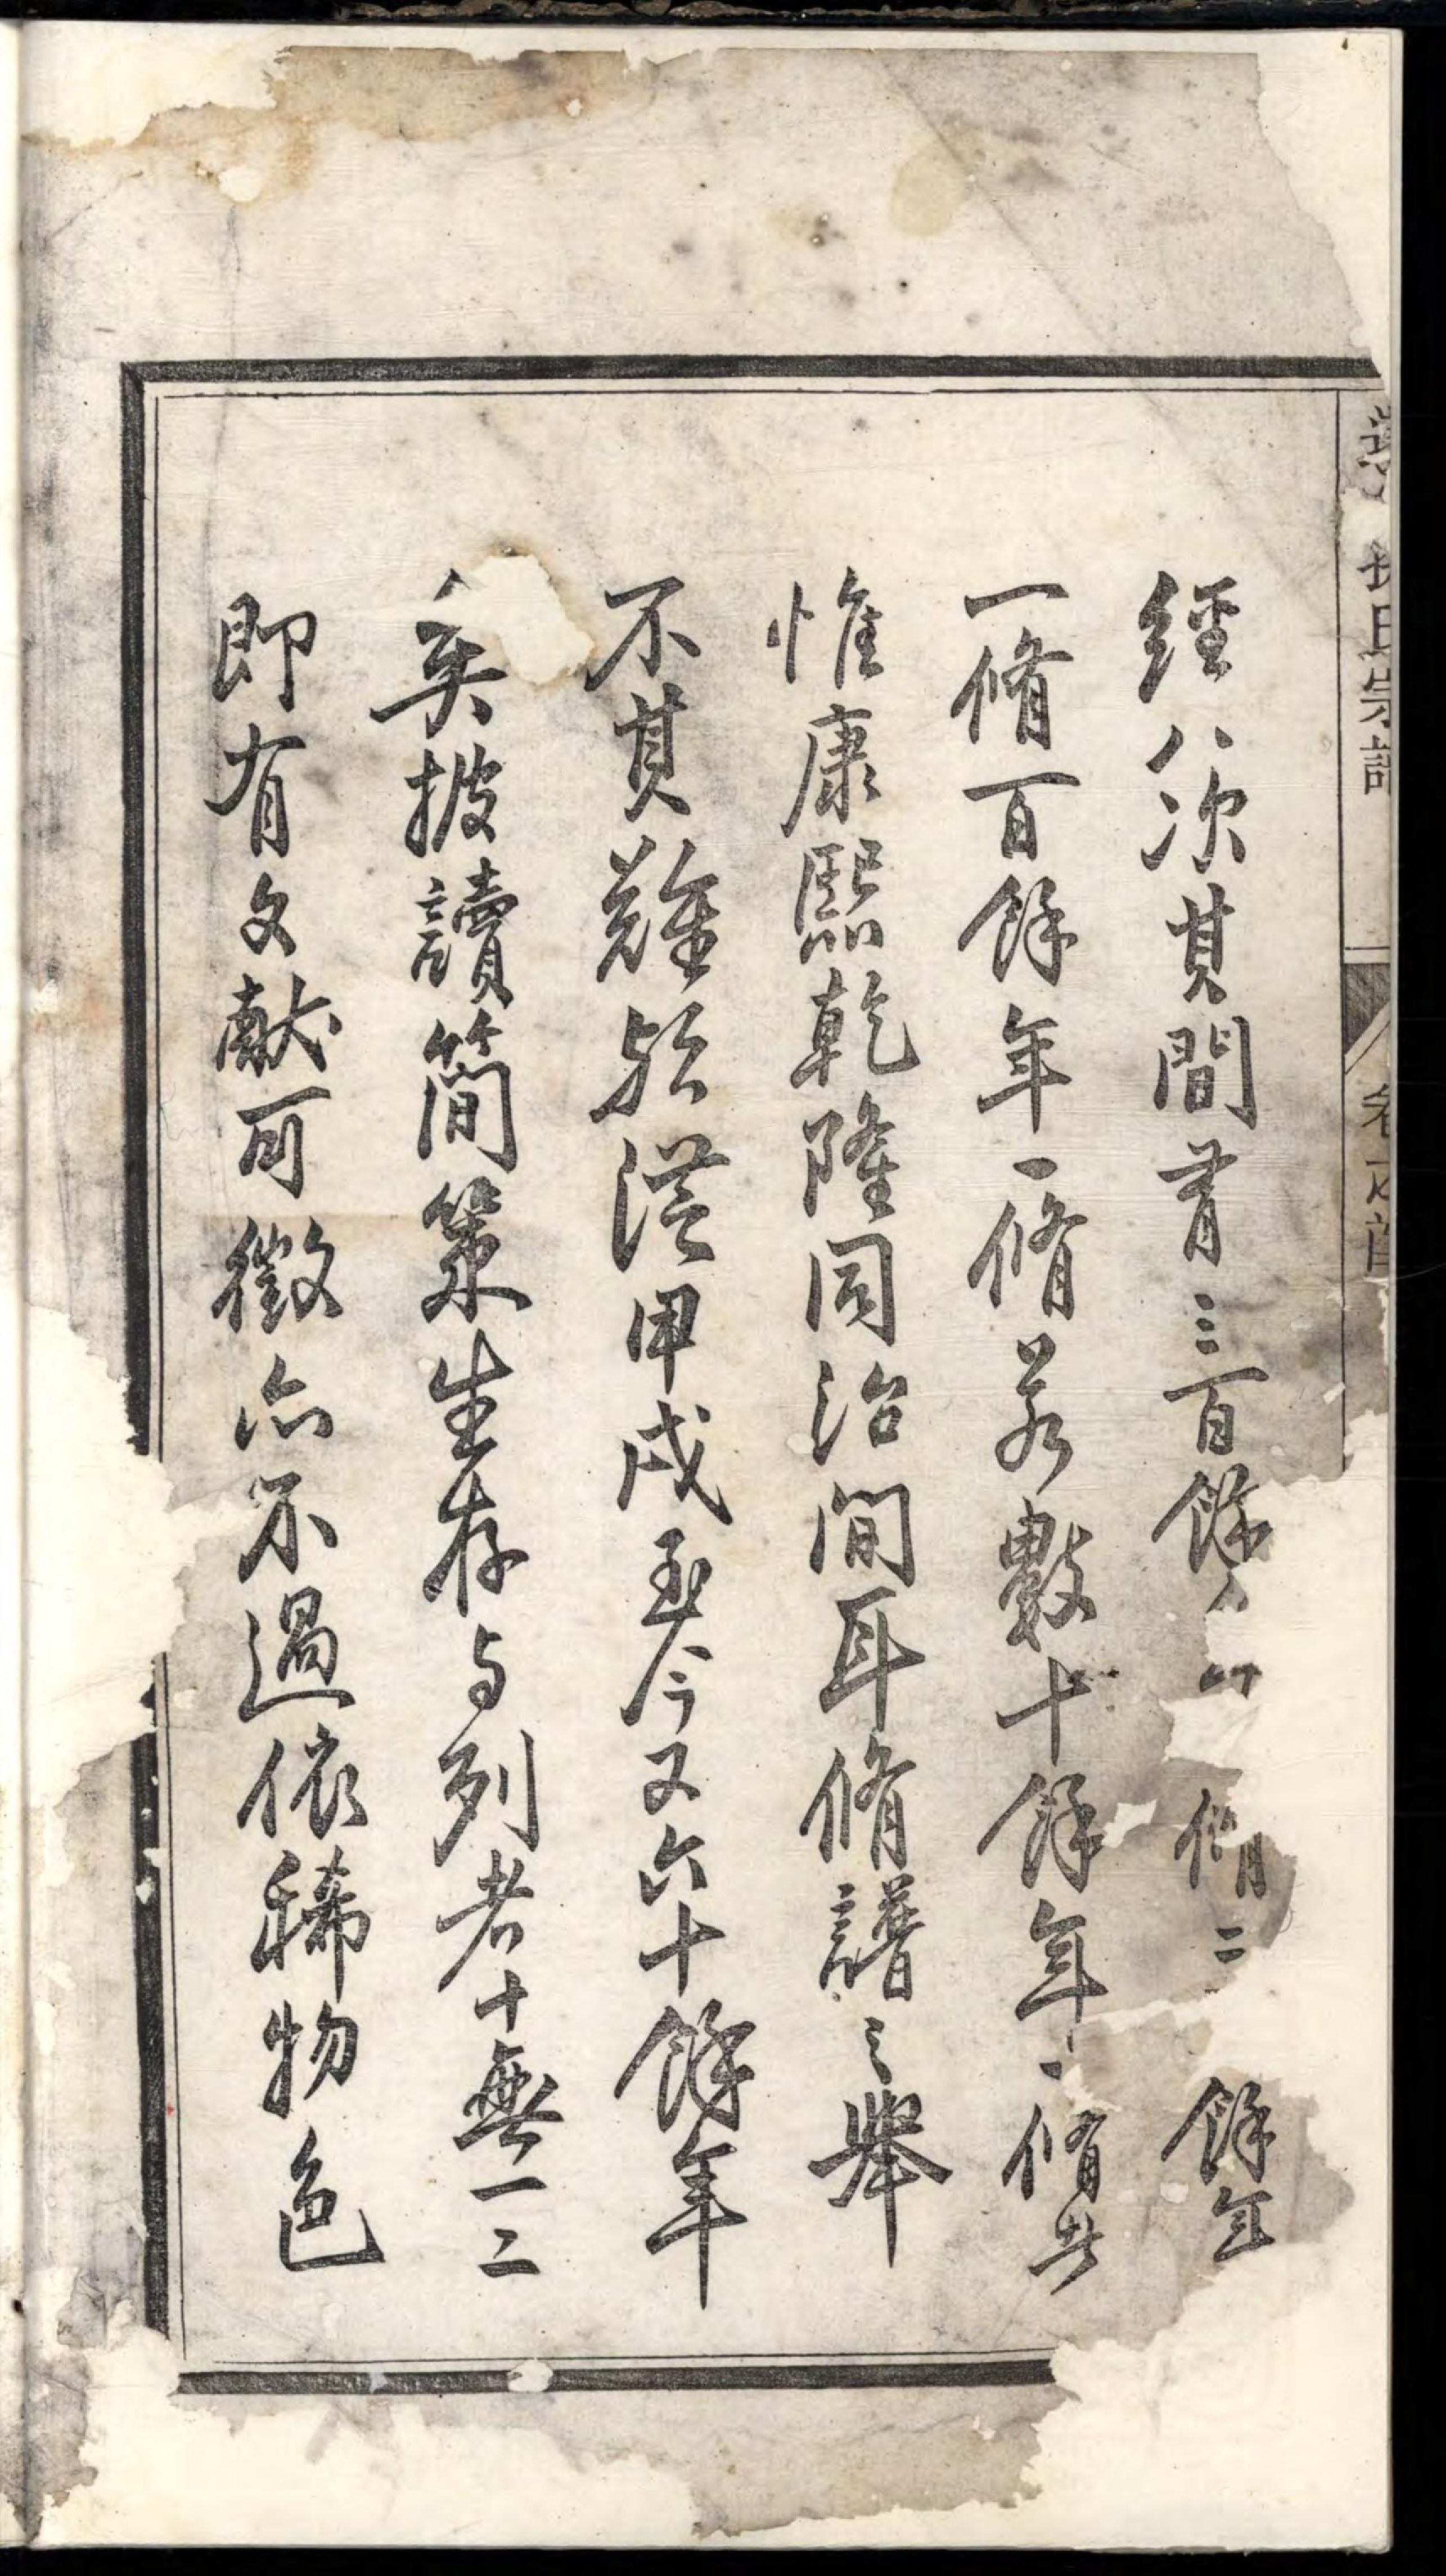 經八次其間有三百餘
脩二
餘年
一脩百餘年一脩若數十餘年一脩者
惟康熙乾隆同治間耳脩譜之舉
不其難歟從甲戌至今又六十餘年
矣披讀簡策生存与列者十無一二
即有文献可徵亦不過依稀物色
氏宗譜